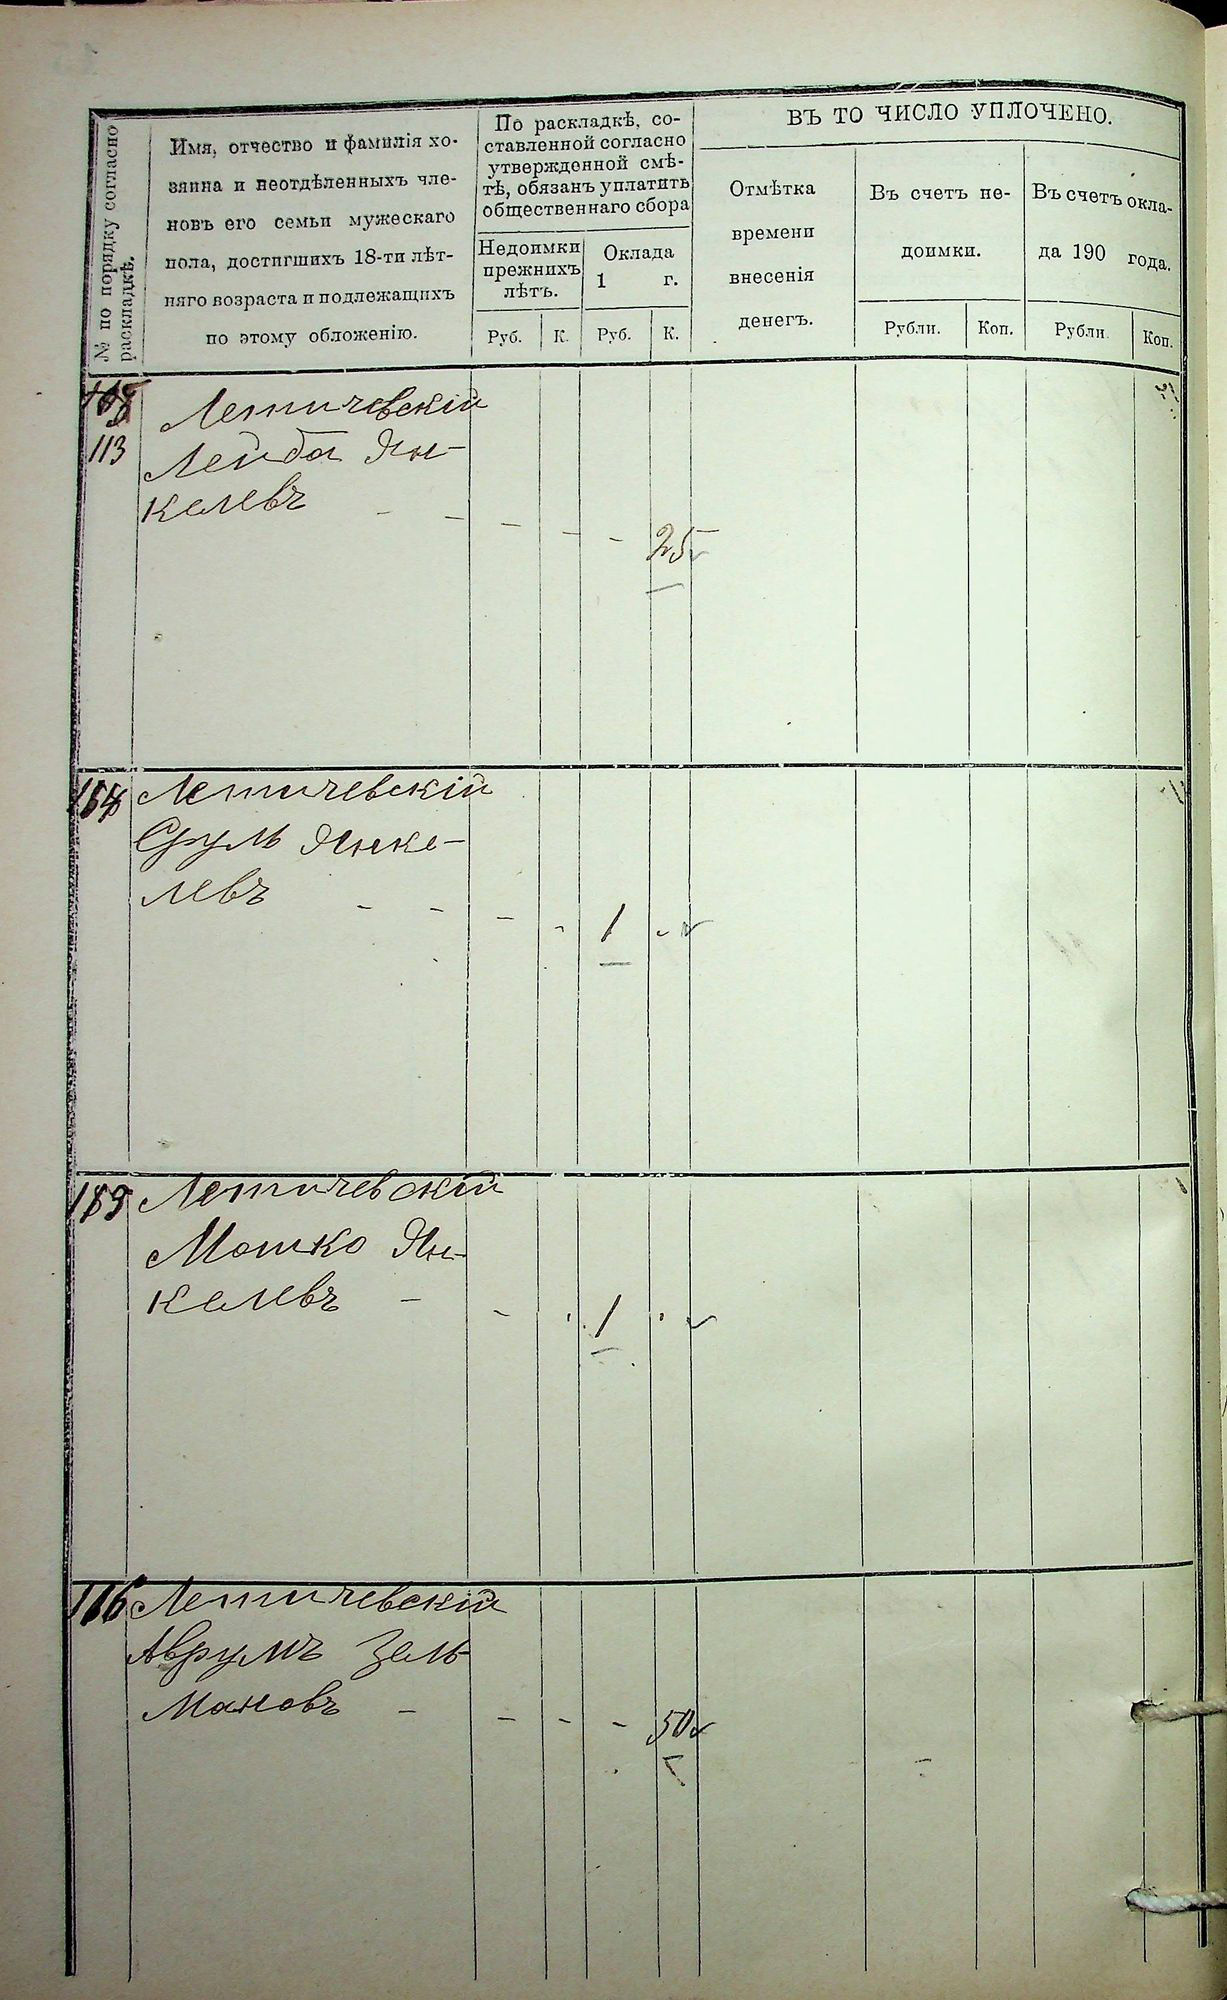 № по порядку согласно
раскладкѣ.
Имя, отчество и фамилія хо-
зяина и неотдѣленныхъ чле-
новъ его семьи мужескаго
пола, достигшихъ 18-ти лѣт-
няго возраста и подлежащихъ
по этому обложенію.
По раскладкѣ, со-
ставленной согласно
утвержденной смѣ-
тѣ, обязанъ уплатить
общественнаго сбора
Недоимки
прежнихъ
лѣтъ.
Оклада
1 г.
Руб. К. Руб. К.
ВЪ ТО ЧИСЛО УПЛОЧЕНО.
Отмѣтка
времени
внесенія
денегъ.
Въ счетъ не-
доимки.
Въ счетъ окла-
да 190 года.
Рубли. Коп. Рубли. Коп.
113
Летичевскій
Лейба Ян-
келевъ - - - - - 25
Летичевскій
Сруль Янке-
левъ - - - - 1 -
Летичевскій
Мошко Ян-
келевъ - - - 1 -
116 Летичевскій
Аврумъ Зель
мановъ - - - - 50